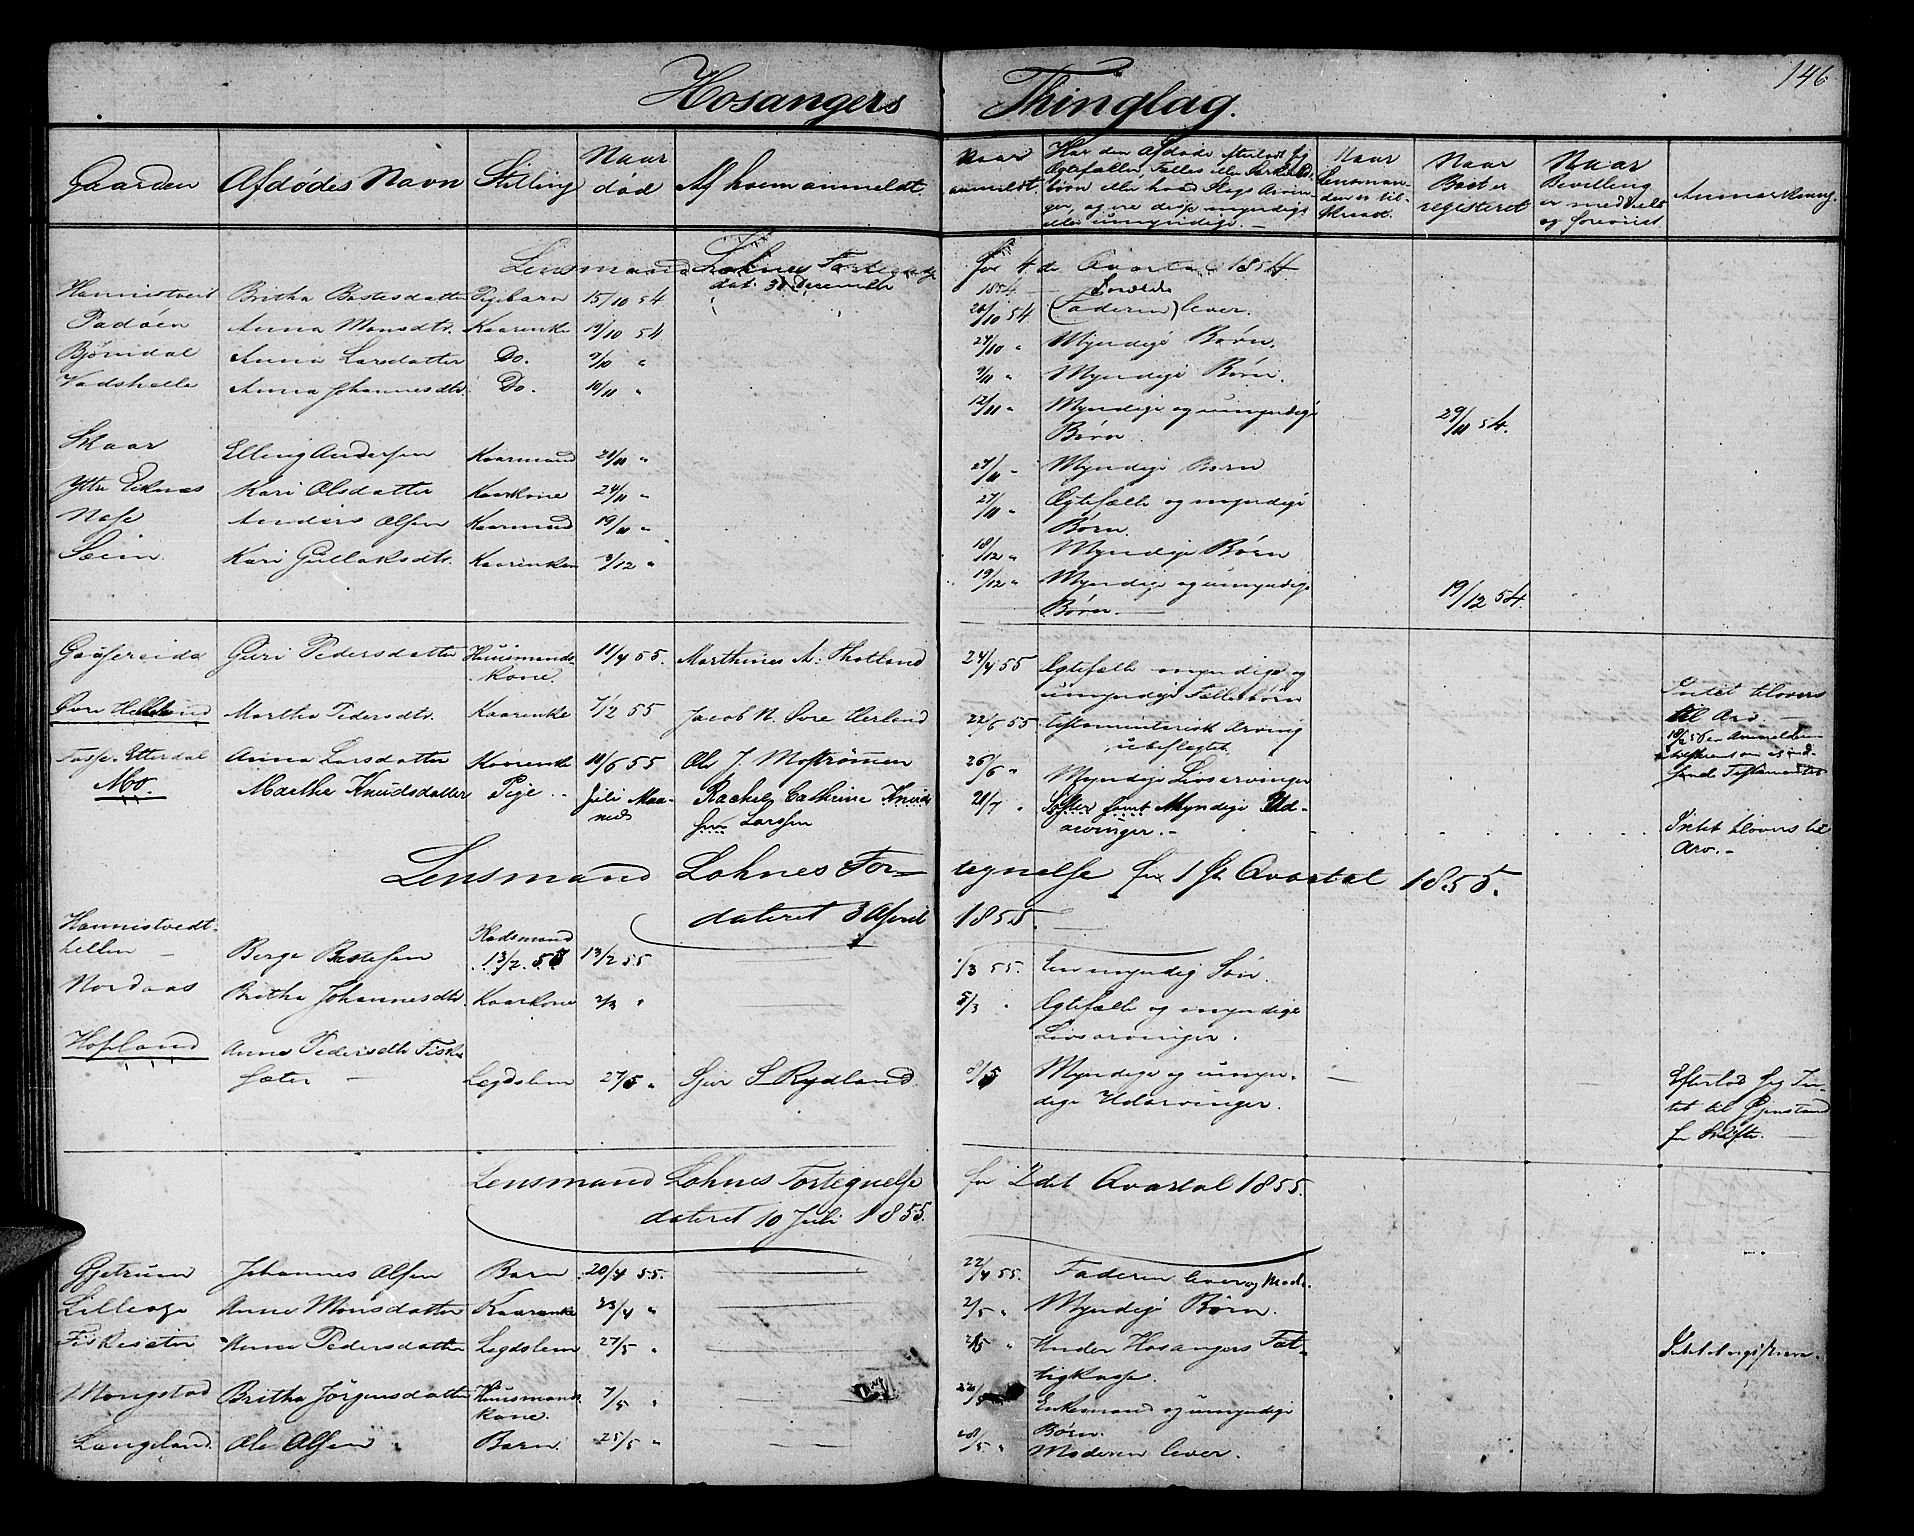 146
Hosangers Thinglag.
Gaarden Afdødes Navn Stilling Naar død Af hvem anmeldt. Naar anmeldt. Har den Afdøde efterladt sig Naar Lensmanden er tilskreat. Naar Boet er registeret Naar Bevilling er meddeelt og foreviist Anmærkning.
Ægtefælle, Fælles eller Særkuldsbörn eller hvad Slags Arvinger, og ere disse myndige eller umyndige. —
Lensmand Lohnes Fortegnelse for 4de Qvartal 1854
dat. 31 December 1854
Hannistveit Britha Bastesdatter Pigebarn 15/10 54 20/10 54 Forældre (Faderen) lever.
Padöen Anna Monsdtr. Kaarenke 19/10 54 24/10 " Myndige Børn.
Bjöndal Anna Larsdatter Do. 9/10 " 9/11 " Myndige Børn.
Vadshelle Anna Johannesdtr. Do. 10/11 " 12/11 " Myndige og umyndige Børn. 29/11 54.
Skaar Elling Andersen Kaarmand 20/11 " 24/11 " Myndige Børn
Ytre Eiknæs Kari Olsdatter Kaarkone 24/11 " 27/11 " Ægtefælle og myndige Børn.
Nese Anders Olsen Kaarmand 19/11 " 18/12 " Myndige Børn
Seim Kari Gullaksdtr. Kaarenken 3/12 " 19/12 " Myndige og umyndige Børn. — 19/12 54.
Guri Pedersdatter Huusmandskone. 11/4 55. Marthines A: Hotland 24/4 55 Ægtefælle myndige og umyndige Fællesbörn
Øvre Helland Martha Pedersdtr. Kaarenke 7/12 55 Jacob N. Øvre Herland 22/6 55. testamenterisk Arving ubefægtet. Intet tilovers til Arv. —
Anna Larsdatter Kaarenke 10/6 55 Ole J. Mostrømen 26/6 " Myndige Livsarvinger
Mo. Marthe Knudsdatter Pige Juli Maaned Rachel Cathrine Knuds Larsen 20/7 " Søster samt Myndige Udarvinger. — Intet tilovers til Arv. —
Lensmand Lohnes Fortegnelse for 1ste Qvartal 1855.
dateret 3 April 1855.
Hannistvedthellen — Berge Bastesen Kadsmand 13/2. 55 13/2 55 1/3 55. En myndig Søn.
Nordaas Britha Johannesdtr. Kaarkone 2/3 " 5/3 " Ægtefælle og myndige Livsarvinger.
Hopland Anna Pedersdtr Fiskesæter — Legdslem 27/5 " Sjur S Rydland. 8/5 Myndige og umyndige Udarvinger. Efterlod sig Intet til Gjenstand for Skifte.
Lensmand Lohnes Fortegnelse for 2det Qvartal 1855.
dateret 10 Juli 1855.
Gjetrum Johannes Olsen Barn 20/4 55. 22/4 55. Faderen lever og Mode.
Lilleoge Anne Monsdatter Kaarenke 23/4 " 2/5 " Myndige Børn.
Fiskesæter Anne Pedersdatter Legdslem 27/5 " 28/5 " Under Hosangers Fattigkasse. Intet at registrere.
Mongstad Britha Jörgensdatter Huusmandskone. 7/5 " 22/5 Enkemand og umyndige Børn.
Langeland. Ole Olsen Barn. 25/5 " 28/5. " Moderen lever.